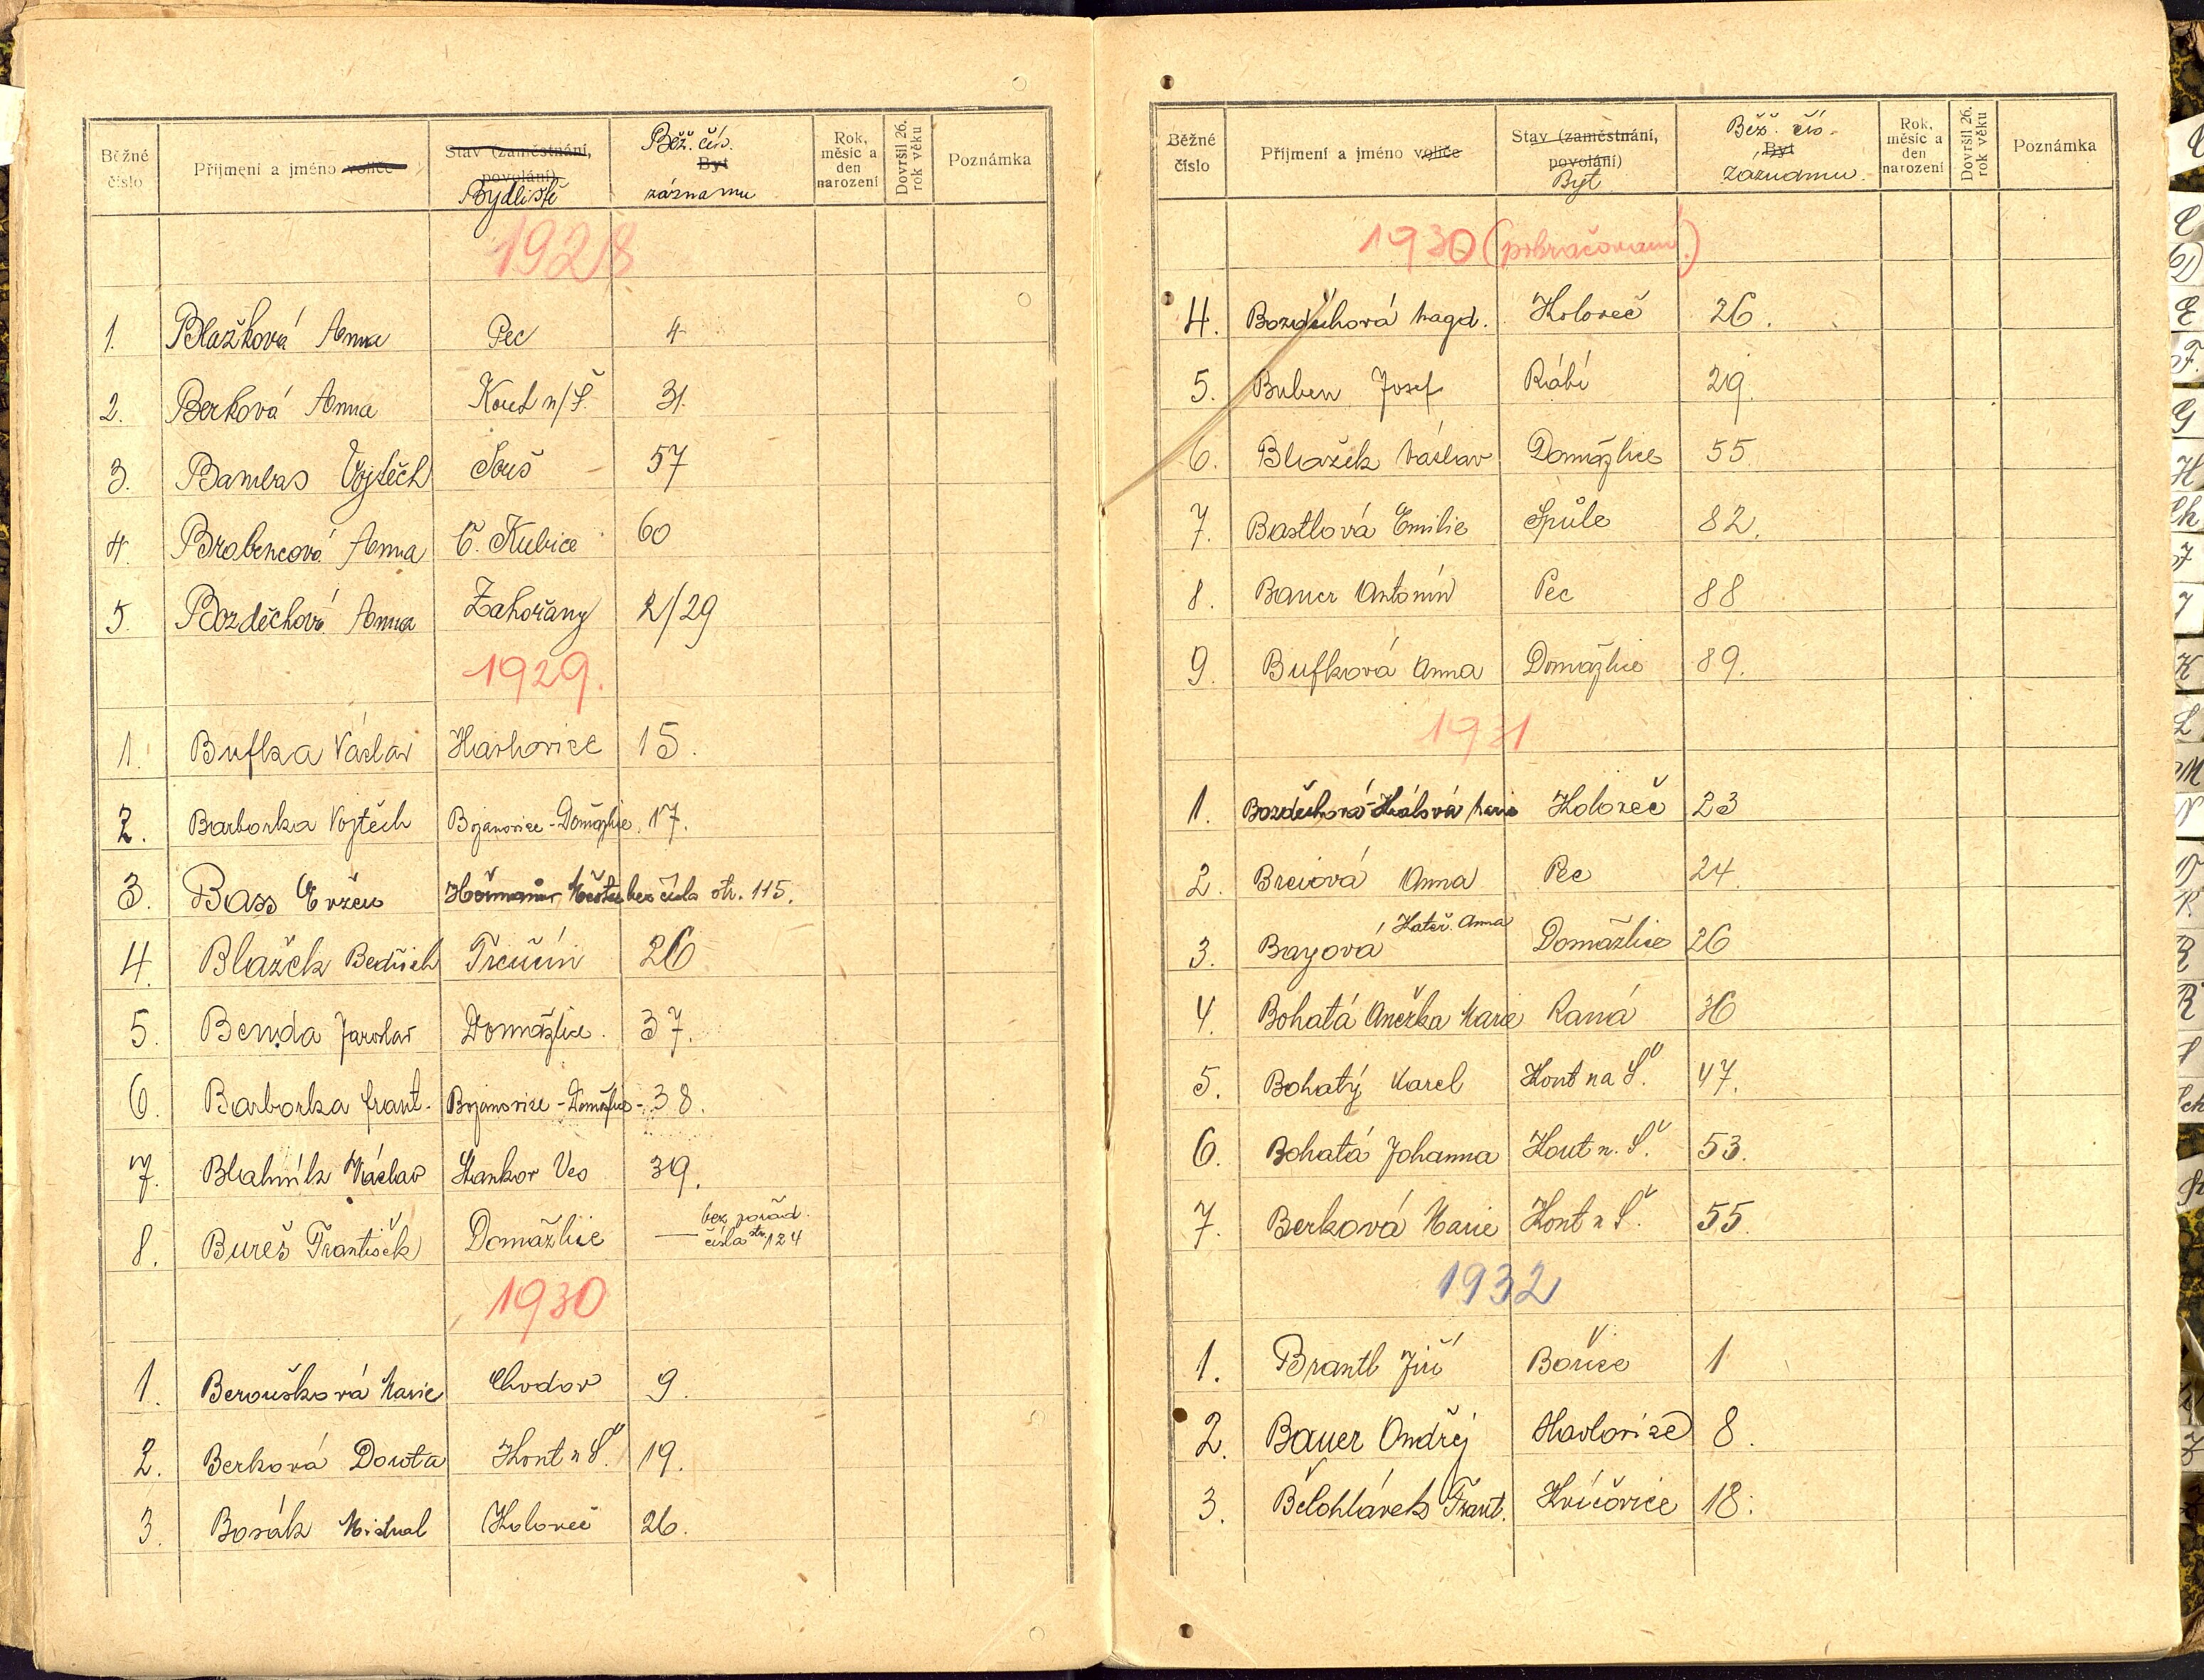 Běžné číslo Příjmení a jméno voliče Stav (zaměstnání, povolání) Bydliště Běž. čís. Byt záznamu Rok, měsíc a den narození Dovršil 26. rok věku Poznámka
1928
1. Blažková Anna Pec 4
2. Berková Anna Kout n/Š. 31.
3. Bambas Vojtěch Souš 57
4. Brabencová Anna Č. Kubice 60
5. Bozděchová Anna Zahořany 2/29
1929.
1. Bufka Václav Havlovice 15.
2. Barborka Vojtěch Bojanovice - Domažlice 17.
3. Bass Evžen Heřmanův Městec bez čísla str. 115.
4. Blažek Bedřich Trenčín 26
5. Benda Jaroslav Domažlice. 37.
6. Barborka Frant. Bojanovice - Domažlice - 38.
7. Blahník Václav Stankov Ves 39.
8. Bureš František Domažlice — bez pořad. čísla str. 124
1930
1. Beroušková Marie Chodov 9.
2. Berková Dorota Kout n Š. 19.
3. Bosák Michal Koloveč 26.
Běžné číslo Příjmení a jméno voliče Stav (zaměstnání, povolání) Byt Běž. čís. Byt záznamu. Rok, měsíc a den narození Dovršil 26. rok věku Poznámka
1930 (pokračování.)
4. Bozděchová Magd. Koloveč 26.
5. Buben Josef Rábí 29.
6. Blažek Václav Domažlice 55
7. Bastlová Emilie Spůle 82.
8. Bauer Antonín Pec 88
9. Bufková Anna Domažlice 89.
1931
1. Bozděchová-Králová Marie Koloveč 23
2. Anna Pec 24.
3. Bayová Kateř. Anna Domažlice 26
4. Bohatá Anežka Marie Raná 36
5. Bohatý Karel Kout na Š. 47.
6. Bohatá Johanna Kout n. Š. 53.
7. Berková Marie Kout n Š. 55.
1932
1. Brantl Jiří Bořice 1
2. Bauer Ondřej Havlovice 8.
3. Bělohlávek Frant. Hvíčovice 18.